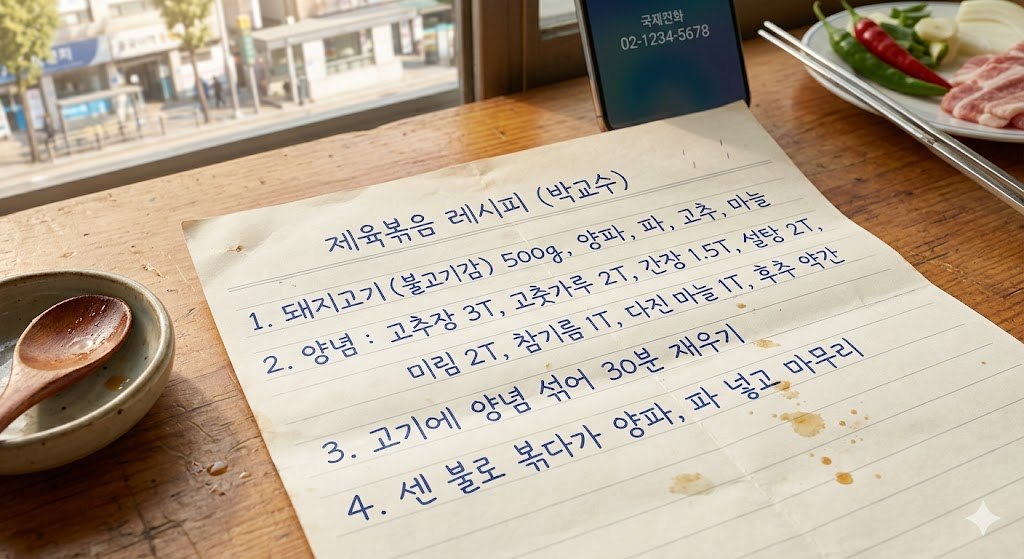 국제전화
02-1234-5678
제육볶음 레시피 (박교수)
1. 돼지고기 (불고기감) 500g, 양파, 파, 고추, 마늘
2. 양념 : 고추장 3T, 고춧가루 2T, 간장 1.5T, 설탕 2T,
미림 2T, 참기름 1T, 다진 마늘 1T, 후추 약간
3. 고기에 양념 섞어 30분 재우기
4. 센 불로 볶다가 양파, 파 넣고 마무리